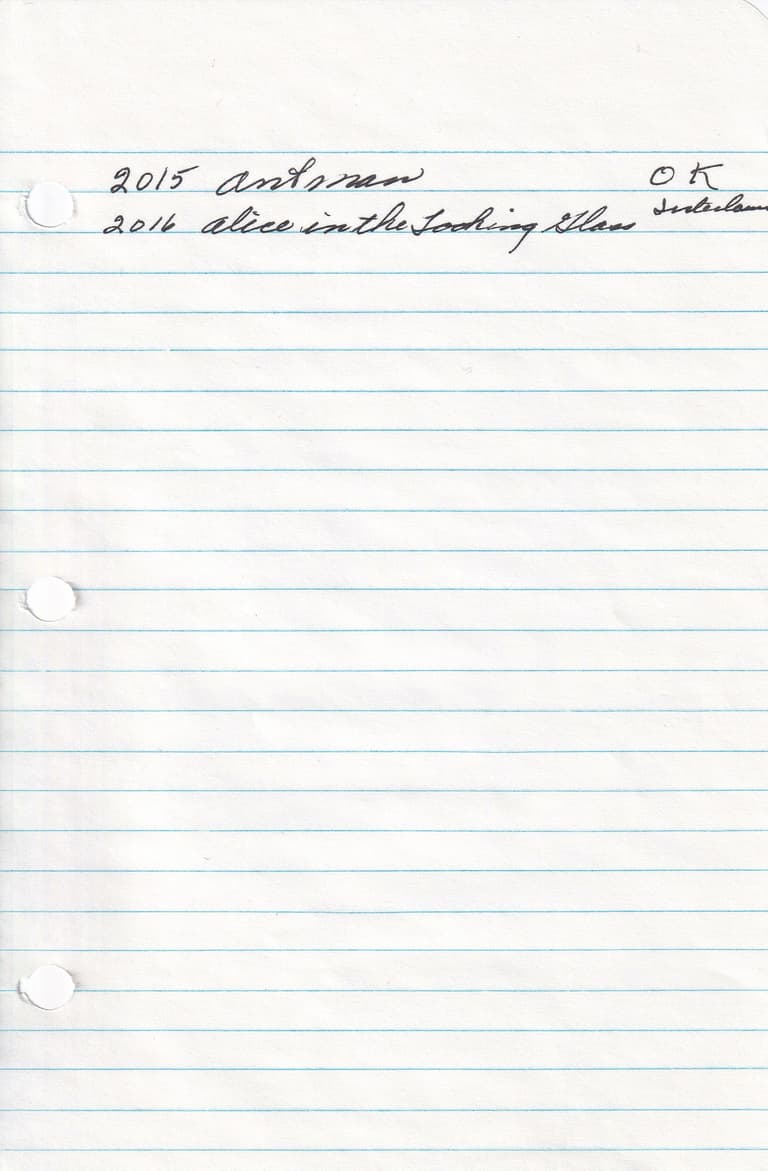 2015 Antman OK
2016 Alice in the Looking Glass